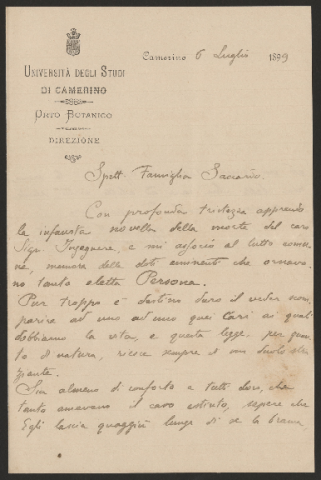 UNIVERSITÀ DEGLI STUDI
DI CAMERINO
ORTO BOTANICO
DIREZIONE
Camerino 6 Luglio 1899
Spett. Famiglia Saccardo.
Con profonda tristezza apprendo
la infausta novella della morte del caro
Sigr. Ingegnere, e mi associo al lutto comu-
ne, memore delle doti eminenti che ornava-
no tanto eletta Persona.
Pur troppo è destino duro il veder scom-
parire ad uno ad uno quei cari ai quali
dobbiamo la vita, e questa legge, per quan-
to di natura, riesce sempre
Sia almeno di conforto a tutti loro, che
tanto amavano il caro estinto, sapere che
Egli lascia quaggiù lungo di se la